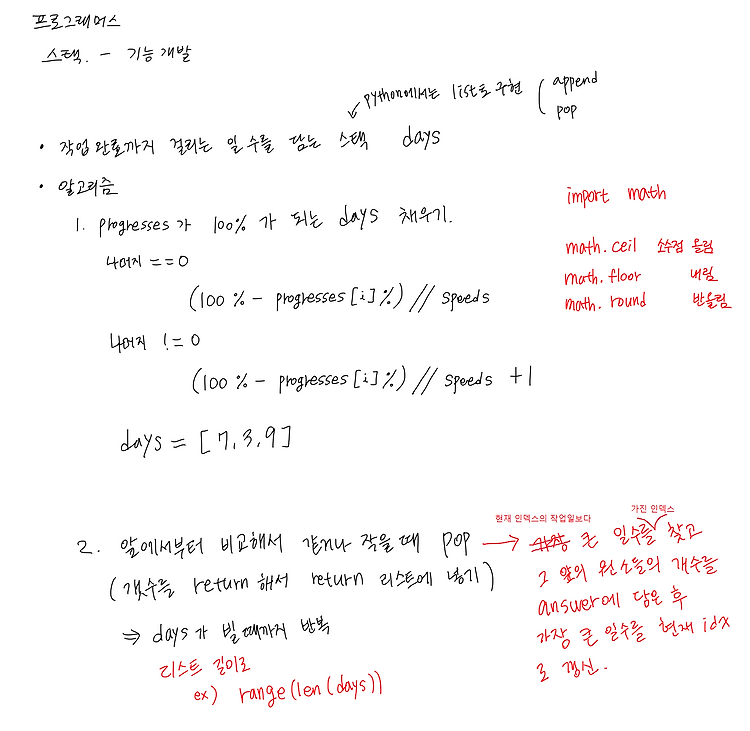 프로그래머스
스택. - 기능개발
python에서는 list로 구현 ( append
pop
• 작업 완료까지 걸리는 일 수를 담는 스택 days
• 알고리즘
import math
1. progresses가 100%가 되는 days 채우기.
math.ceil 소수점 올림
나머지 ==0
math.floor 내림
(100 % - progresses[i]%) // speeds
math.round 반올림
나머지 != 0
(100 % - progresses[i]%) // speeds +1
days = [7, 3, 9]
현재 인덱스의 작업일보다
가진 인덱스
2. 앞에서부터 비교해서 같거나 작을 때 pop → 큰 일수를 찾고
(갯수를 return해서 return 리스트에 넣기)
그 앞의 원소들의 개수를
answer에 담은 후
⇒ days가 빌 때까지 반복
가장 큰 일수를 현재 idx
리스트 길이로
로 갱신.
ex) range(len(days))